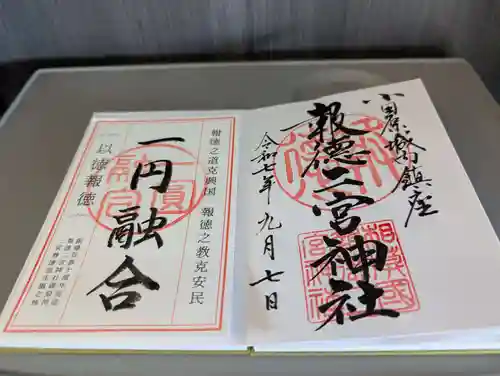 小田原城内鎮座
報徳二宮神社
令和七年九月七日
報徳之道克興国 報徳之教克安民
一円融合
以徳報徳